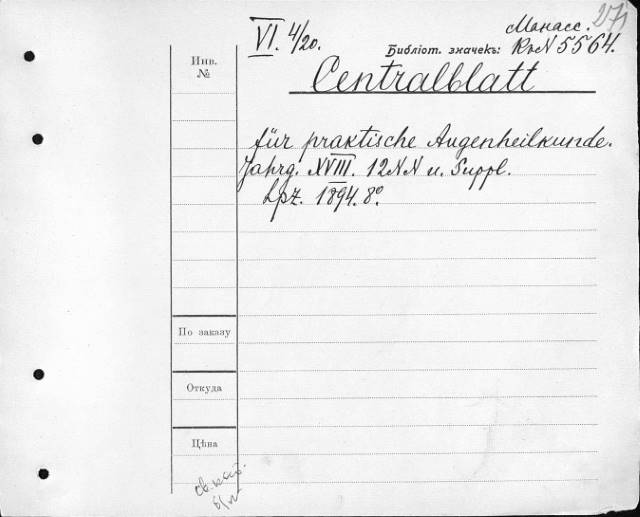 271
Манасс.
VI. 4/20.
Библіот. значекъ: К.N 5564.
Инв.
№
Centralblatt
für praktische Augenheilkunde.
Jahrg. XVIII. 12NN u. Suppl.
Lpz. 1894. 8º.
По заказу
Откуда
Цѣна